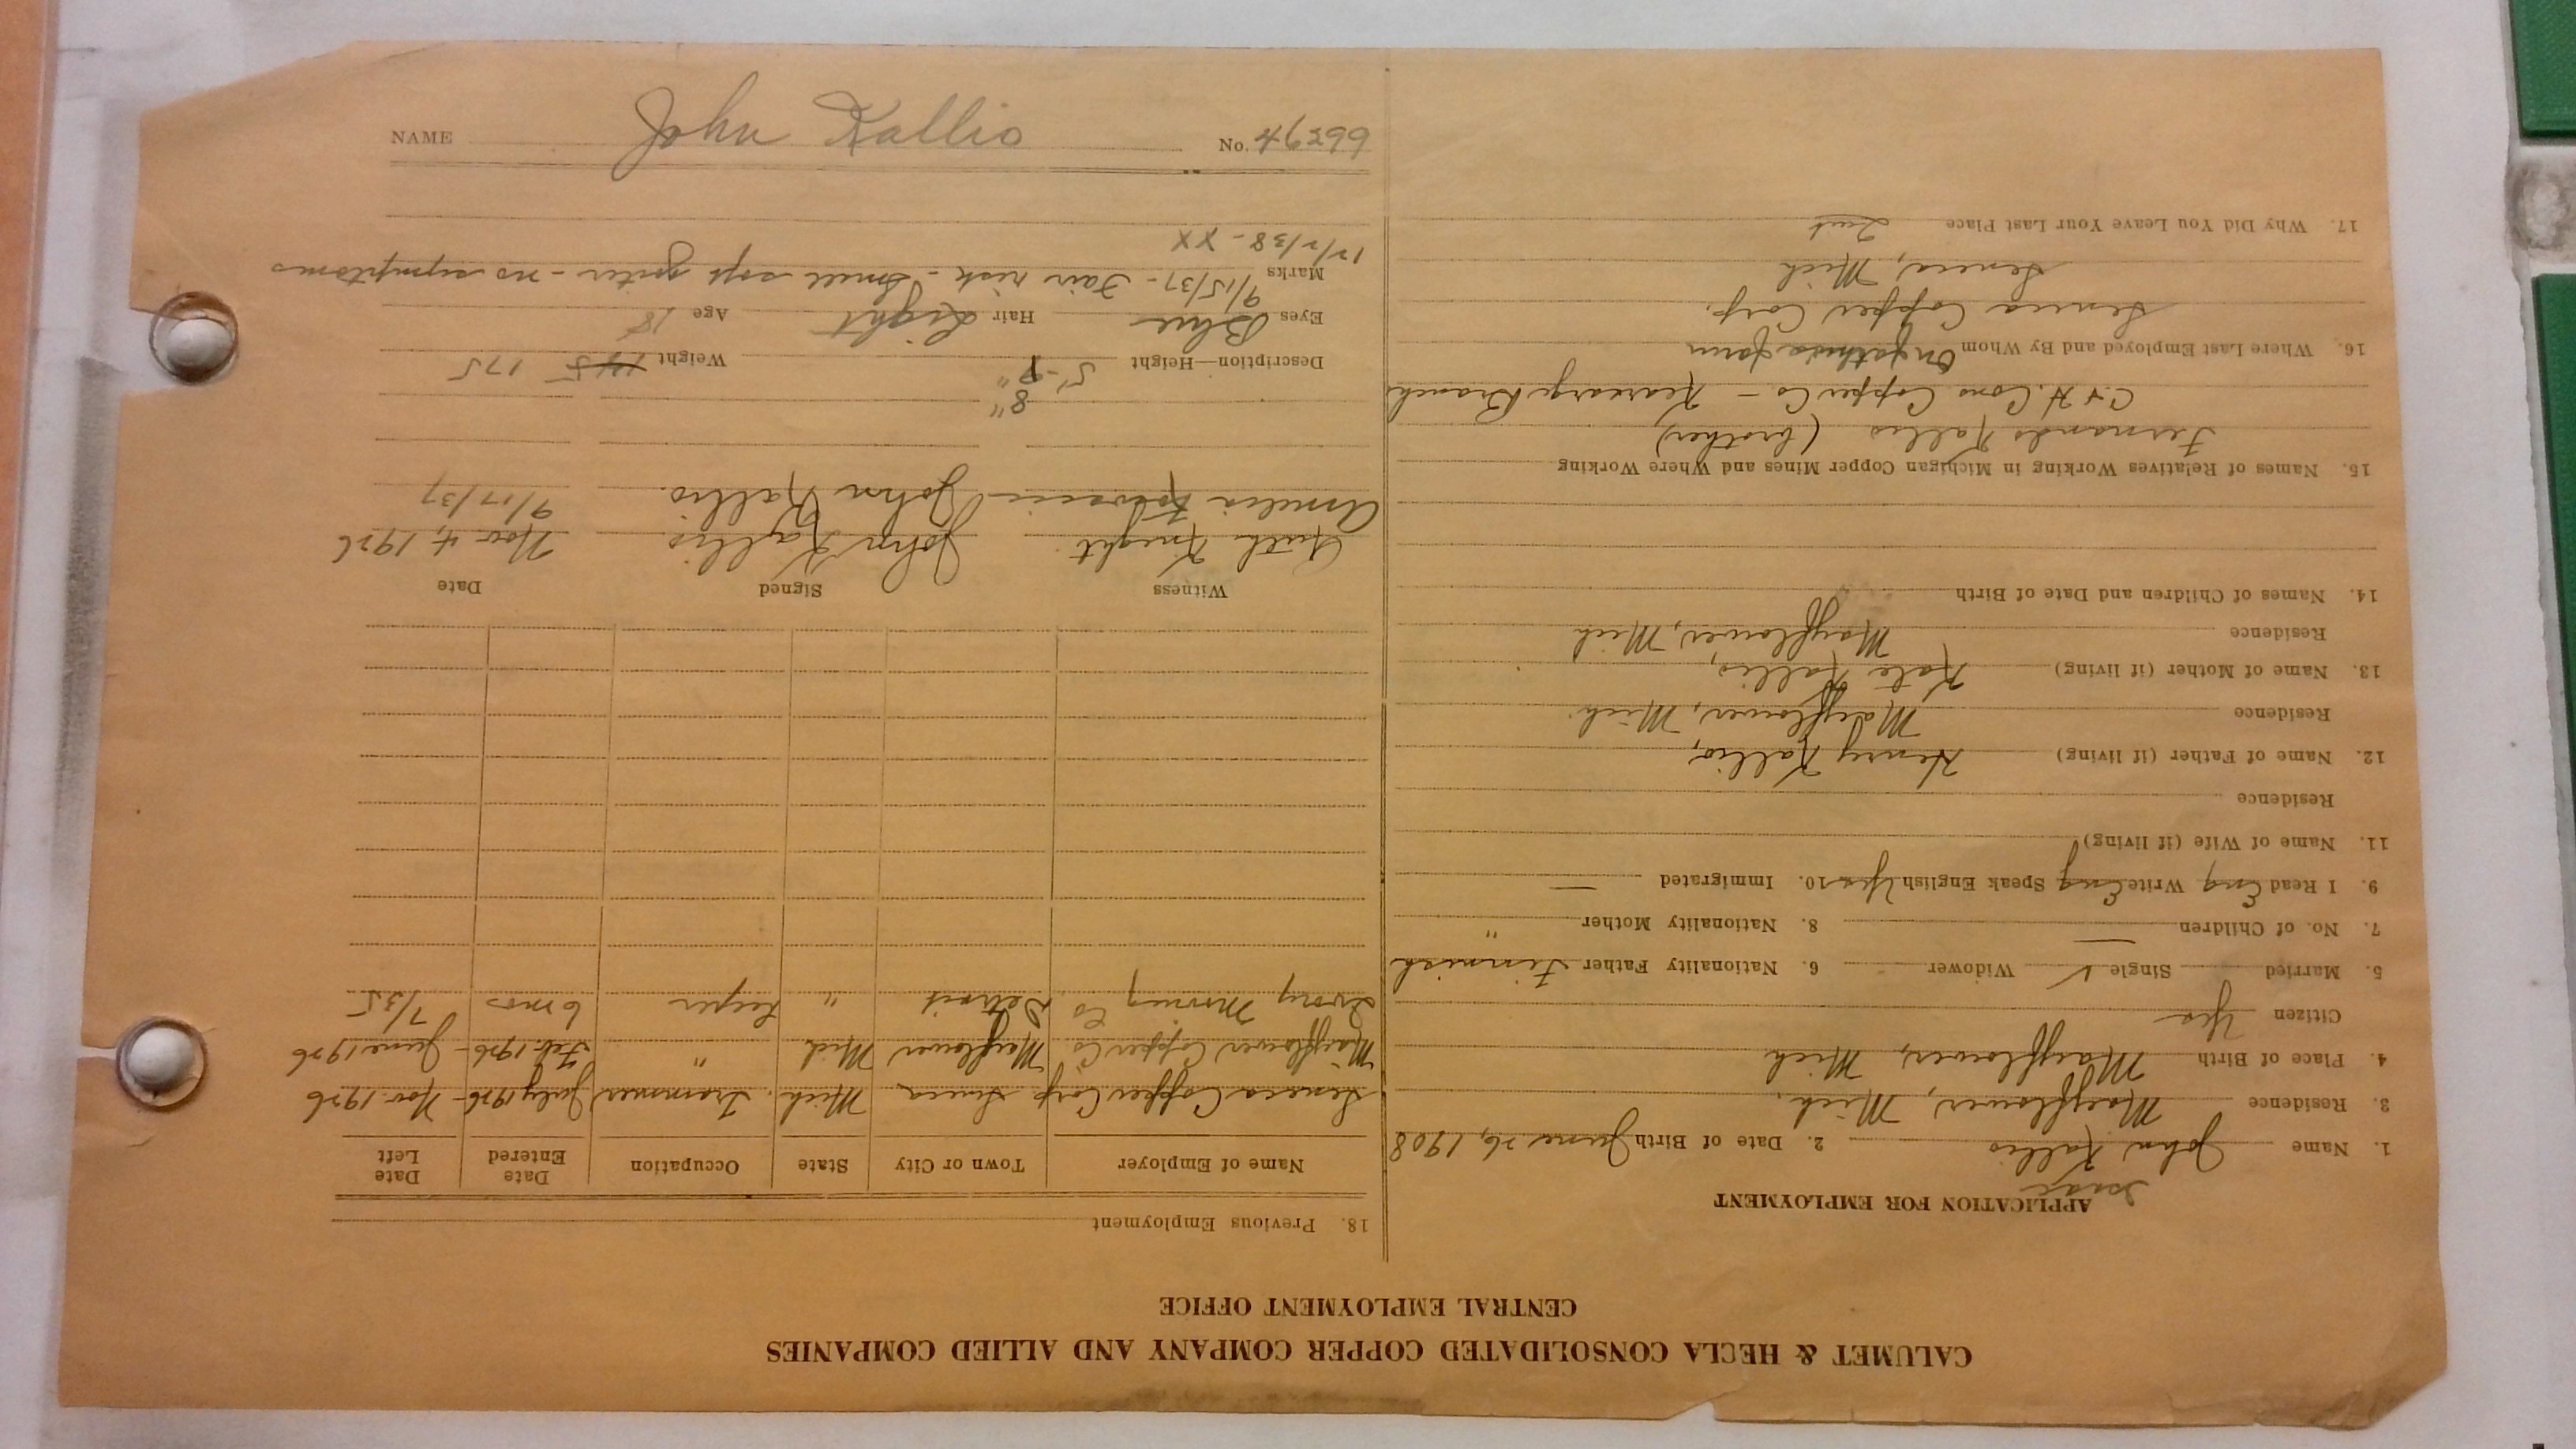 CALUMET & HECLA CONSOLIDATED COPPER COMPANY AND ALLIED COMPANIES
CENTRAL EMPLOYMENT OFFICE
APPLICATION FOR EMPLOYMENT
Isaac
1. Name John Kallio 2. Date of Birth June 26, 1908
3. Residence Mayflower, Mich.
4. Place of Birth Mayflower, Mich
Citizen Yes
5. Married Single ✓ Widower 6. Nationality Father Finnish
7. No. of Children — 8. Nationality Mother "
9. I Read Eng Write Eng Speak English Yes 10. Immigrated —
11. Name of Wife (if living)
Residence
12. Name of Father (if living) Henry Kallio,
Residence Mayflower, Mich.
13. Name of Mother (if living) Kate Kallio,
Residence Mayflower, Mich
14. Names of Children and Date of Birth
15. Names of Relatives Working in Michigan Copper Mines and Where Working
Fernando Kallio (brother)
C. & H. Cons Copper Co - Kearsarge Branch
16. Where Last Employed and By Whom On fathers farm
Seneca Copper Corp.
Seneca, Mich
17. Why Did You Leave Your Last Place Quit
18. Previous Employment
Name of Employer Town or City State Occupation Date Entered Date Left
Seneca Copper Corp Seneca Mich. Trammer July 1926 - Nov. 1926
Mayflower Copper Co. Mayflower Mich " Feb. 1926 - June 1926
Co Detroit " 6 mos 7/35
Witness Signed Date
Ruth Knight John Kallio Nov 4, 1926
Amelia John Kallio. 9/17/37
8"
Description—Height 5'-9" Weight 145 175
Eyes Blue Hair Light Age 18
Marks 9/15/37 - Fair risk - Small soft goiter - no symptoms
12/2/38 - XX
NAME John Kallio No. 46299